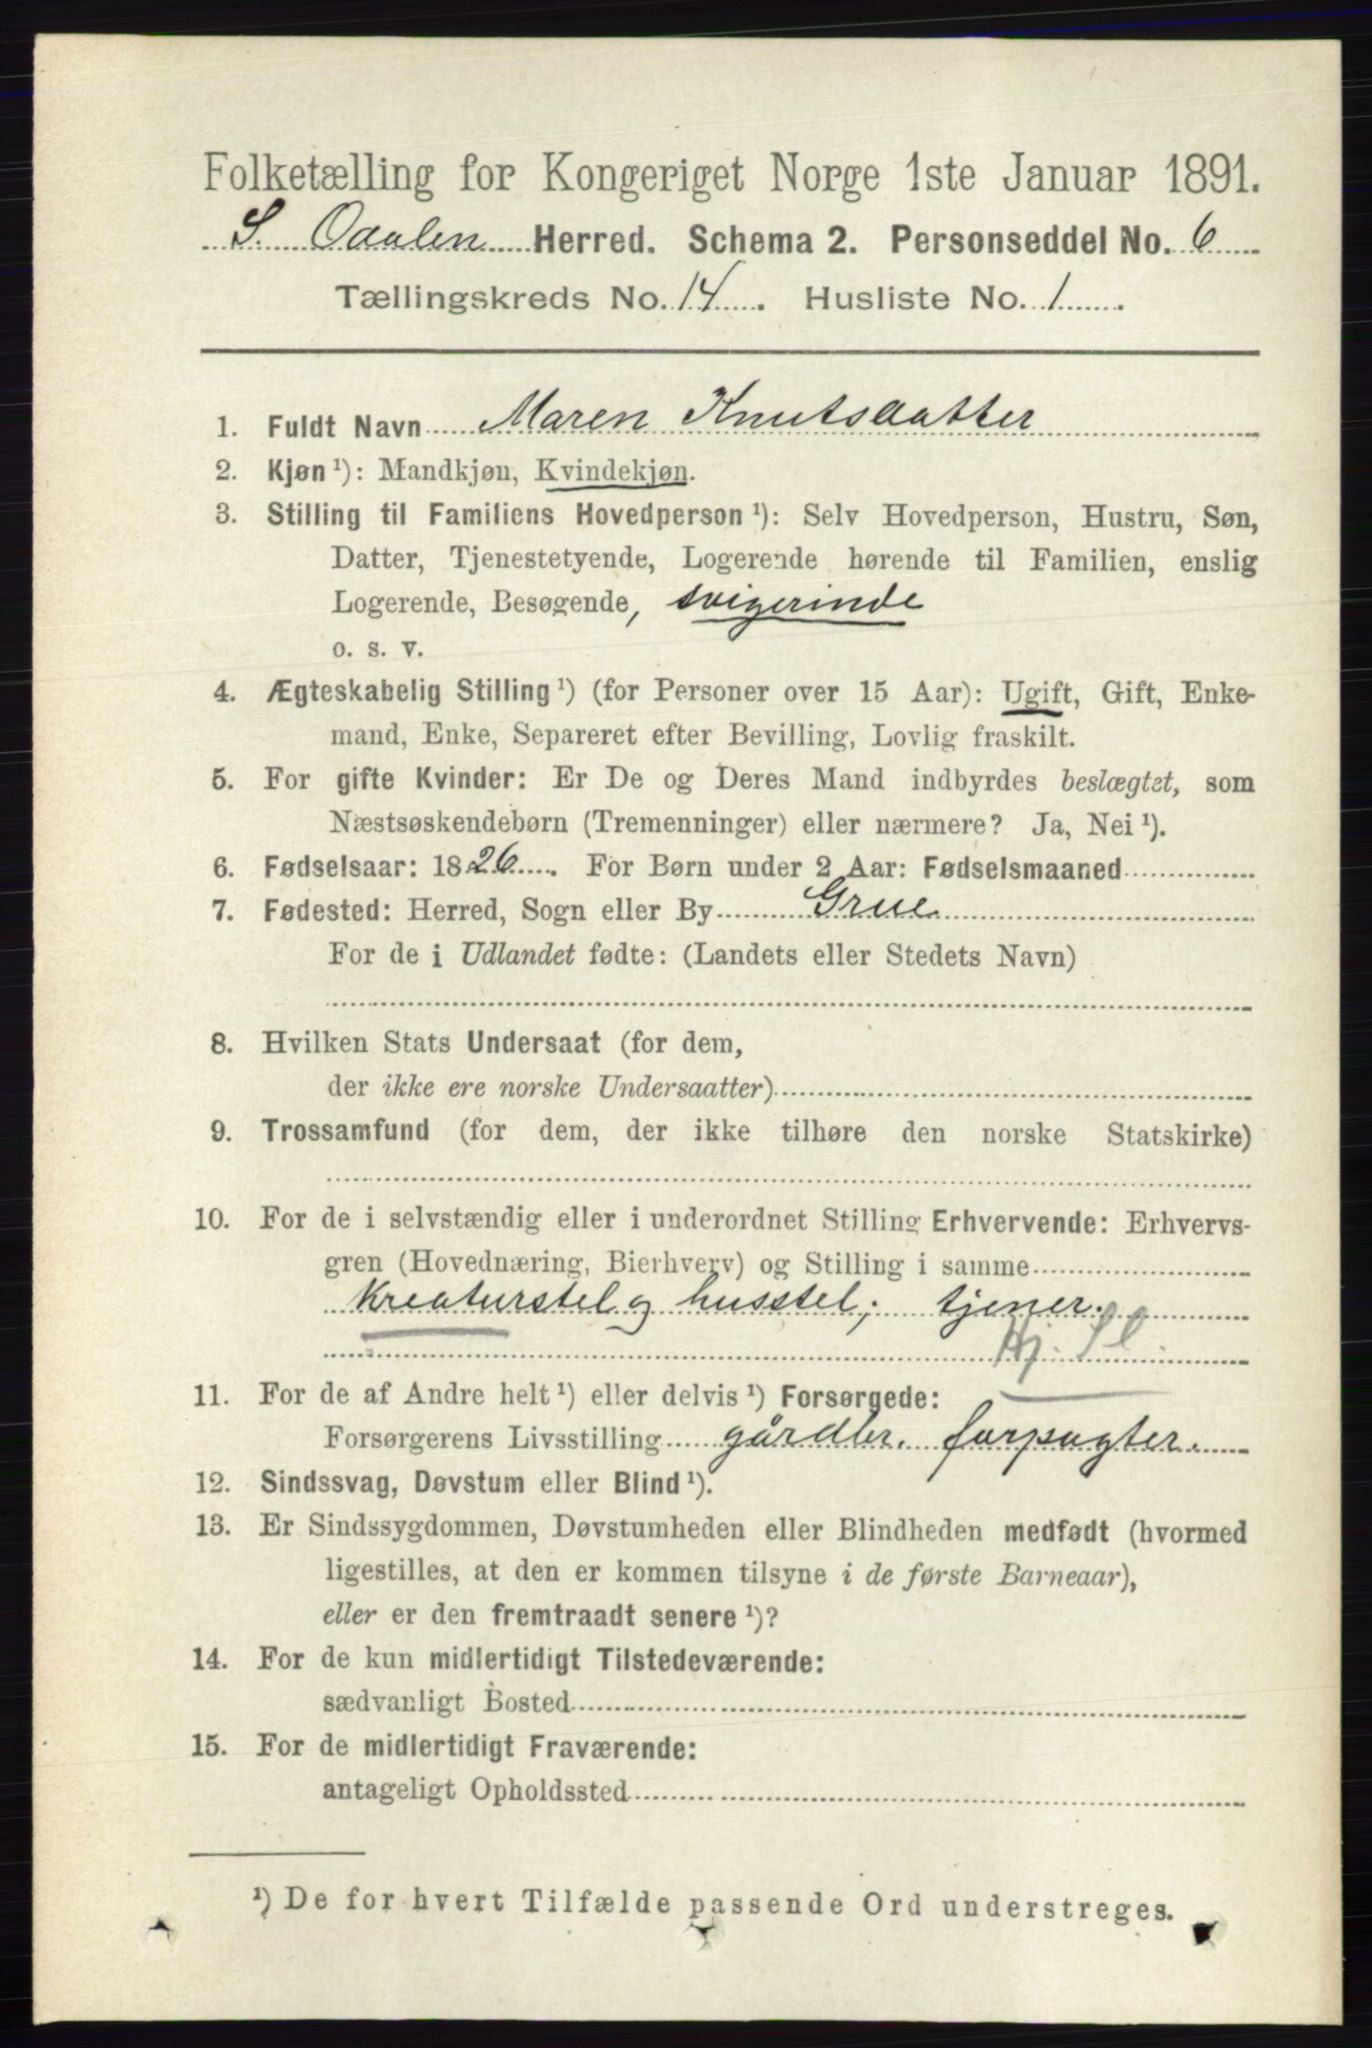 Folketælling for Kongeriget Norge 1ste Januar 1891.
S. Odalen Herred. Schema 2. Personseddel No. 6
Tællingskreds No. 14. Husliste No. 1.
1. Fuldt Navn Maren Knutsdatter
2. Kjøn ¹): Mandkjøn, Kvindekjøn.
3. Stilling til Familiens Hovedperson ¹): Selv Hovedperson, Hustru, Søn,
Datter, Tjenestetyende, Logerende hørende til Familien, enslig
Logerende, Besøgende, svigerinde
o. s. v.
4. Ægteskabelig Stilling ¹) (for Personer over 15 Aar): Ugift, Gift, Enke-
mand, Enke, Separeret efter Bevilling, Lovlig fraskilt.
5. For gifte Kvinder: Er De og Deres Mand indbyrdes beslægtet, som
Næstsøskendebørn (Tremenninger) eller nærmere? Ja, Nei ¹).
6. Fødselsaar: 1826. For Børn under 2 Aar: Fødselsmaaned
7. Fødested: Herred, Sogn eller By Grue.
For de i Udlandet fødte: (Landets eller Stedets Navn)
8. Hvilken Stats Undersaat (for dem,
der ikke ere norske Undersaatter)
9. Trossamfund (for dem, der ikke tilhøre den norske Statskirke)
10. For de i selvstændig eller i underordnet Stilling Erhvervende: Erhvervs-
gren (Hovednæring, Bierhverv) og Stilling i samme
Kreaturstel og husstel; tjener.
11. For de af Andre helt ¹) eller delvis ¹) Forsørgede:
Forsørgerens Livsstilling gårdbr. forpagter.
12. Sindssvag, Døvstum eller Blind ¹).
13. Er Sindssygdommen, Døvstumheden eller Blindheden medfødt (hvormed
ligestilles, at den er kommen tilsyne i de første Barneaar),
eller er den fremtraadt senere ¹)?
14. For de kun midlertidigt Tilstedeværende:
sædvanligt Bosted
15. For de midlertidigt Fraværende:
antageligt Opholdssted
¹) De for hvert Tilfælde passende Ord understreges.